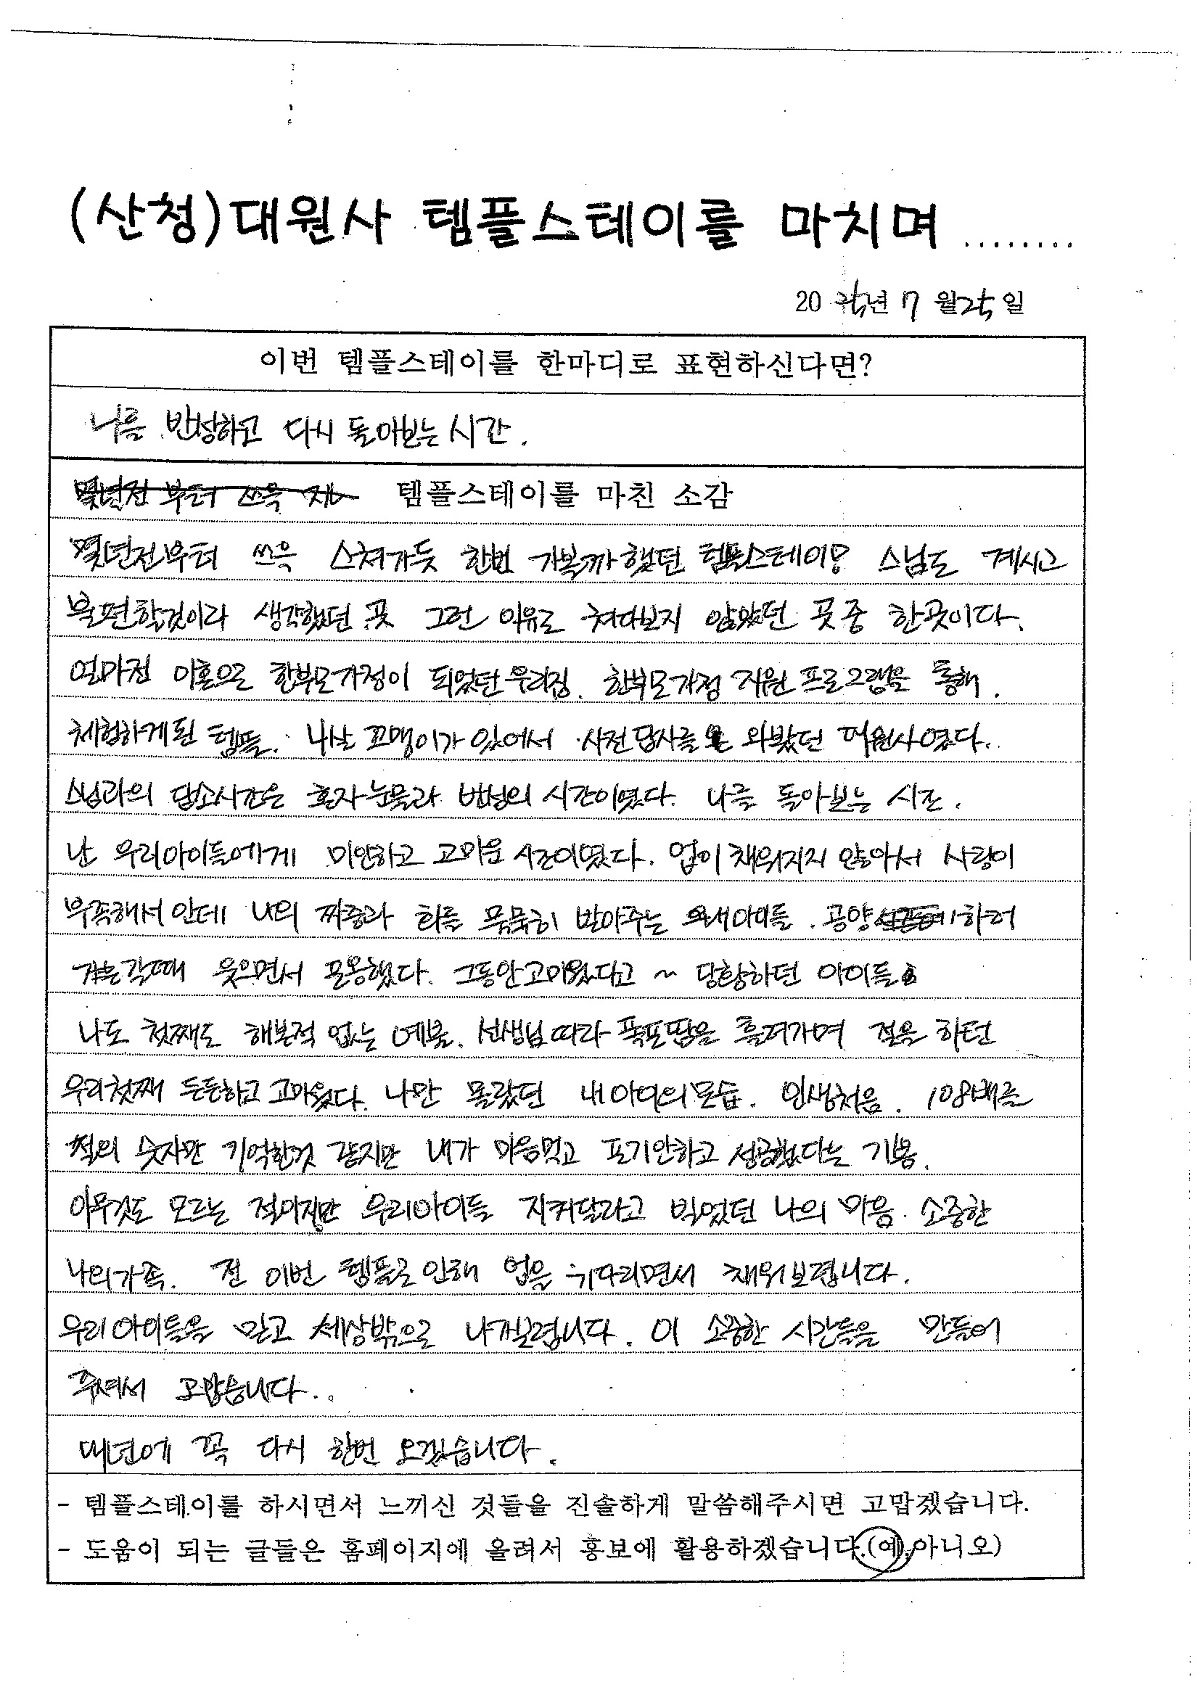 (산청)대원사 템플스테이를 마치며 ........
20 년 7 월 25 일
이번 템플스테이를 한마디로 표현하신다면?
나를 반성하고 다시 돌아보는 시간.
템플스테이를 마친 소감
몇년전부터 쓰윽 스쳐가듯 한번 가볼까했던 템플스테이 스님도 계시고
불편할것이라 생각했던 곳 그런 이유로 쳐다보지 않았던 곳 중 한곳이다.
얼마전 이혼으로 한부모가정이 되었던 우리집. 한부모가정 지원 프로그램을 통해.
체험하게된 템플. 나는 꼬맹이가 있어서 사전답사를 와봤던 대원사였다..
스님과의 담소시간은 혼자눈물과 반성의 시간이였다. 나를 돌아보는 시간.
난 우리아이들에게 미안하고 고마운 시간이였다. 업이 채워지지 않아서 사랑이
부족해서 인데 나의 짜증과 화를 묵묵히 받아주는 아이들. 공양 하러
걸을때 웃으면서 포옹했다. 그동안 고마웠다고 ~ 당황하던 아이들
나도 첫째도 해본적 없는 예불. 선생님따라 폭포땀을 흘려가며 절을 하던
우리첫째 든든하고 고마웠다. 나만 몰랐던 내아이의모습. 인생처음. 108배를
절의 숫자만 기억한것 같지만 내가 마음먹고 포기안하고 성공했다는 기쁨.
아무것도 모르는 절이지만 우리아이들 지켜달라고 빌었던 나의 마음. 소중한
나의가족. 전 이번 템플로인해 업을 기다리면서 채워보렵니다.
우리아이들을 믿고 세상밖으로 나가보렵니다. 이 소중한 시간들을 만들어
주셔서 고맙습니다..
내년에 꼭 다시 한번 오겠습니다.
- 템플스테이를 하시면서 느끼신 것들을 진솔하게 말씀해주시면 고맙겠습니다.
- 도움이 되는 글들은 홈페이지에 올려서 홍보에 활용하겠습니다.(예.아니오)